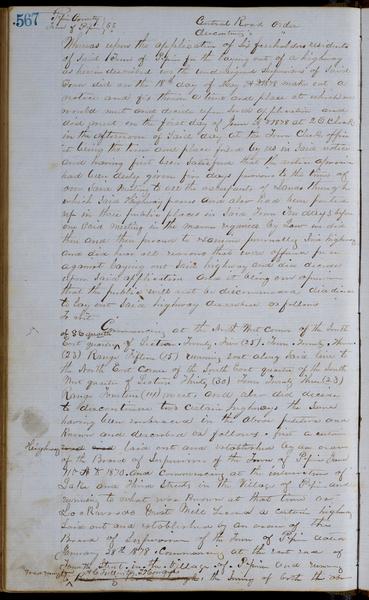 567
Pepin County
Town of Pepin } SS
Central Road Order
discontg
Whereas upon the application of freeholders residents
of Said Town of Pepin for the laying out of a highway
as herein described the undersigned Supervisors of Said
Town did on the 18th day of May AD 1878 make out a
notice and fix therein a time and place at which we
would meet and decide upon said application and
did meet on the first day of June AD 1878 at 2 O Clock
in the afternoon of Said day at the Town Clerks office
it being the time and place fixed by us in Said notice
and having first been Satisfied that the notice aforesaid
had been duly given five days previous to the time of
our Said meeting to all the occupants of Lands through
which Said highway passes and also had been posted
up in three public places in Said Town Ten days before
our Said meeting in the manner required by Law we did
then and there proceed to examine personally Said highway
and did hear all reasons that were offered for or
against laying out Said highway and did decide
upon Said application and it being our opinion
that the public will not be discommoded decided
to lay out Said highway described as follows
To wit
Commencing at the North West Corner of the South
East quarter of Section Twenty Five (25) Town Twenty Three
(23) Range Fifteen (15) running East along Said line to
the North East Corner of the South East quarter of the South
West quarter of Section Thirty (30) Town Twenty Three (23)
Range Fourteen (14) west and also did decide
to discontinue two certain highways the Same
having been embraced in the above petition and
known and described as follows: first a certain
Highway laid out and established by an order
of the Board of Supervisors of the Town of Pepin June
AD 1870 And Commencing at the intersection of
Lake and Third Streets in the Village of Pepin and
running to what was known at that time as
Grist Mill Second a certain highway
laid out and established by an order of the
Board of Supervisors of the Town of Pepin dated
January 28th 1878 Commencing at the east end of
Fourth Street in the Village of Pepin and running
the Survey of both the above